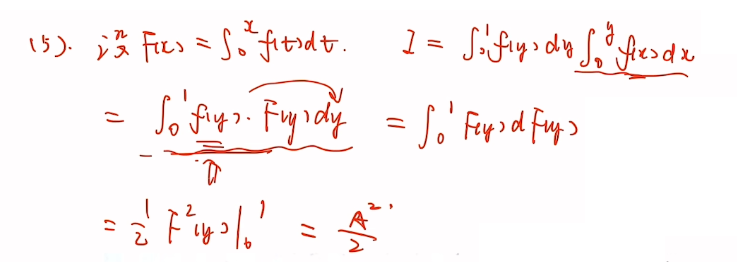 (5). 设 F(x) = ∫₀ˣ f(t)dt. I = ∫₀¹ f(y) dy ∫₀ʸ f(x) dx
= ∫₀¹ f(y) · F(y) dy = ∫₀¹ F(y) d F(y)
= ½ F²(y) |₀¹ = A²/2